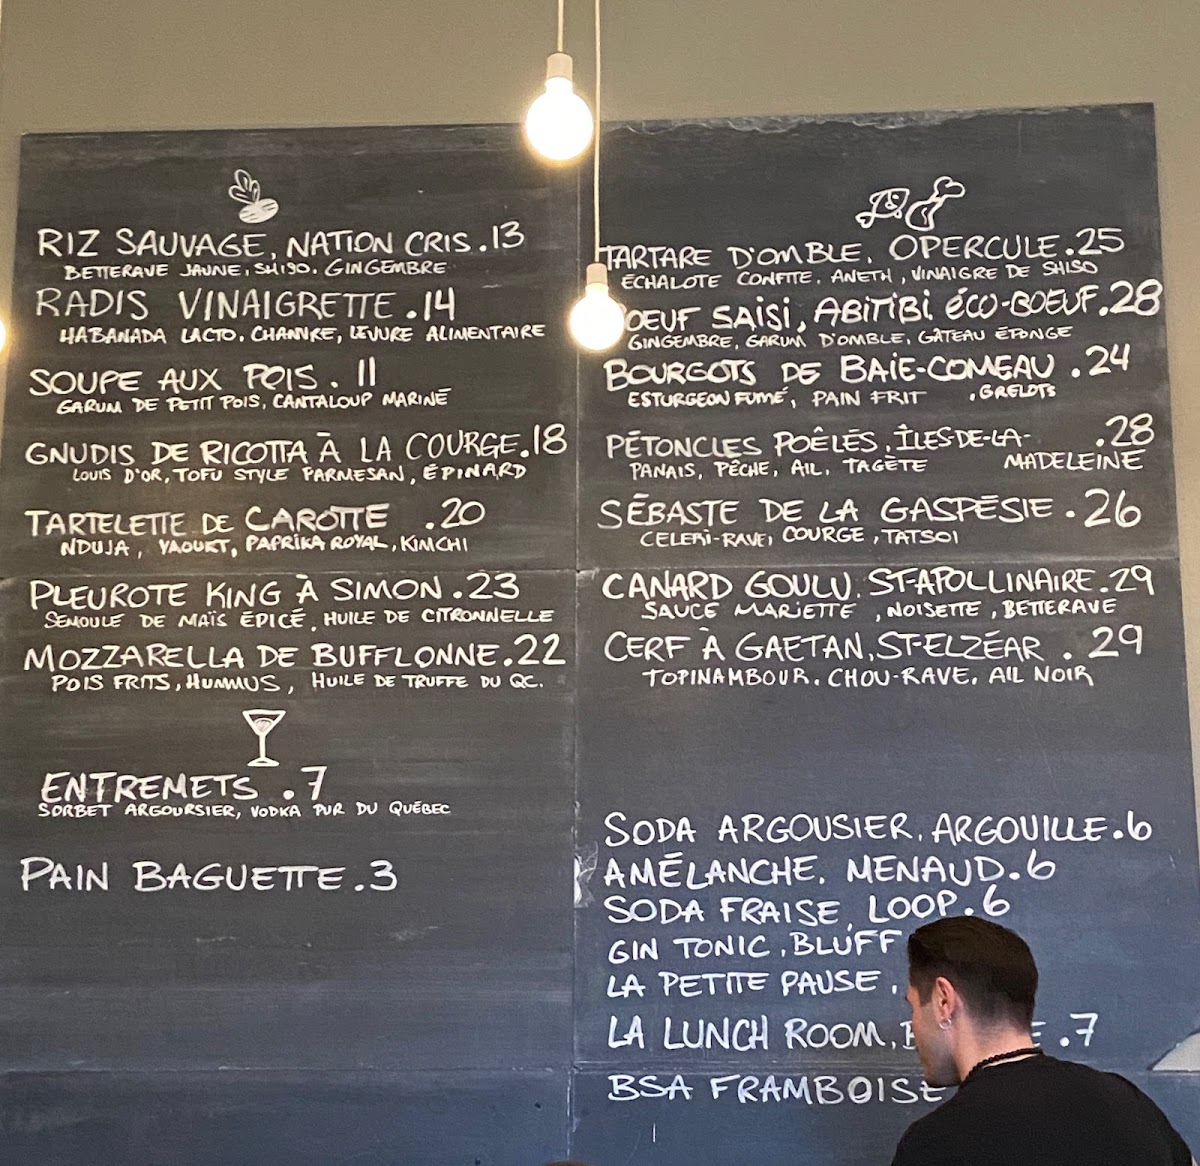 RIZ SAUVAGE, NATION CRIS .13
BETTERAVE JAUNE, SHISO, GINGEMBRE
RADIS VINAIGRETTE .14
HABANADA LACTO, CHANVRE, LEVURE ALIMENTAIRE
SOUPE AUX POIS . 11
GARUM DE PETIT POIS, CANTALOUP MARINÉ
GNUDIS DE RICOTTA À LA COURGE .18
LOUIS D'OR, TOFU STYLE PARMESAN, ÉPINARD
TARTELETTE DE CAROTTE .20
NDUJA, YAOURT, PAPRIKA ROYAL, KIMCHI
PLEUROTE KING À SIMON .23
SEMOULE DE MAÏS ÉPICÉ, HUILE DE CITRONNELLE
MOZZARELLA DE BUFFLONNE .22
POIS FRITS, HUMMUS, HUILE DE TRUFFE DU QC.
ENTREMETS .7
SORBET ARGOURSIER, VODKA PUR DU QUÉBEC
PAIN BAGUETTE .3
TARTARE D'OMBLE, OPERCULE .25
ÉCHALOTE CONFITE, ANETH, VINAIGRE DE SHISO
BOEUF SAISI, ABITIBI ÉCO-BOEUF .28
GINGEMBRE, GARUM D'OMBLE, GÂTEAU ÉPONGE
BOURGOTS DE BAIE-COMEAU .24
ESTURGEON FUMÉ, PAIN FRIT , GRELOTS
PÉTONCLES POÊLÉS, ÎLES-DE-LA- .28
MADELEINE
PANAIS, PÊCHE, AIL, TAGÈTE
SÉBASTE DE LA GASPÉSIE .26
CELERI-RAVE, COURGE, TATSOI
CANARD GOULU, ST-APOLLINAIRE .29
SAUCE MARIETTE, NOISETTE, BETTERAVE
CERF À GAETAN, ST-ELZÉAR . 29
TOPINAMBOUR, CHOU-RAVE, AIL NOIR
SODA ARGOUSIER, ARGOUILLE .6
AMÉLANCHE, MENAUD .6
SODA FRAISE, LOOP .6
GIN TONIC, BLUFF
LA PETITE PAUSE,
LA LUNCH ROOM, .7
BSA FRAMBOISE